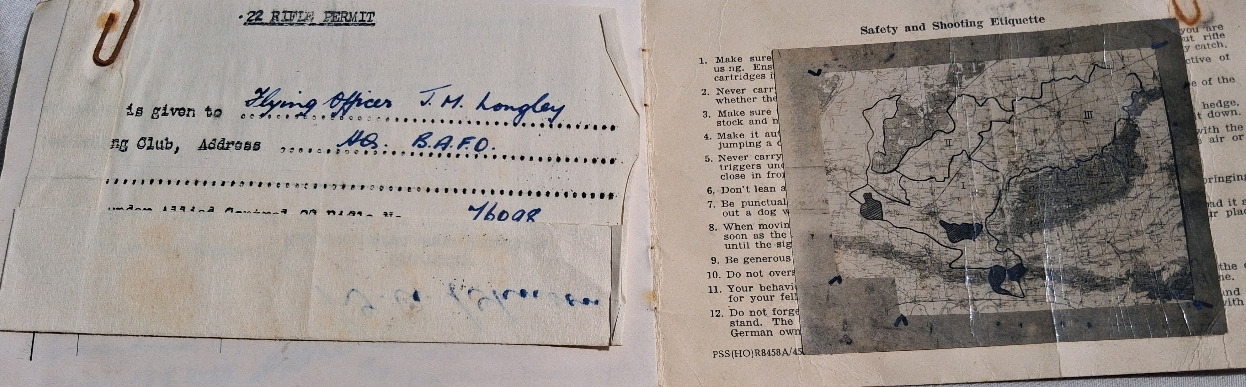 .22 RIFLE PERMIT
is given to Flying Officer J.M. Longley
ng Club, Address HQ. B.A.F.O.
Safety and Shooting Etiquette
1. Make sure
us ng. Ens
cartridges i
2. Never carr
whether the
3. Make sure
stock and n
4. Make it au
jumping a d
5. Never carry
triggers und
close in fron
6. Don't lean a
7. Be punctual
out a dog w
8. When movin
soon as the
until the sig
9. Be generous
10. Do not overs
11. Your behavi
for your fell
12. Do not forge
stand. The
German own
PSS(HO)R8458A/45
you are
ut rifle
y catch.
ctive of
e of the
hedge,
t down.
with the
air or
pringing
ad it a
ir plac
I
II
III